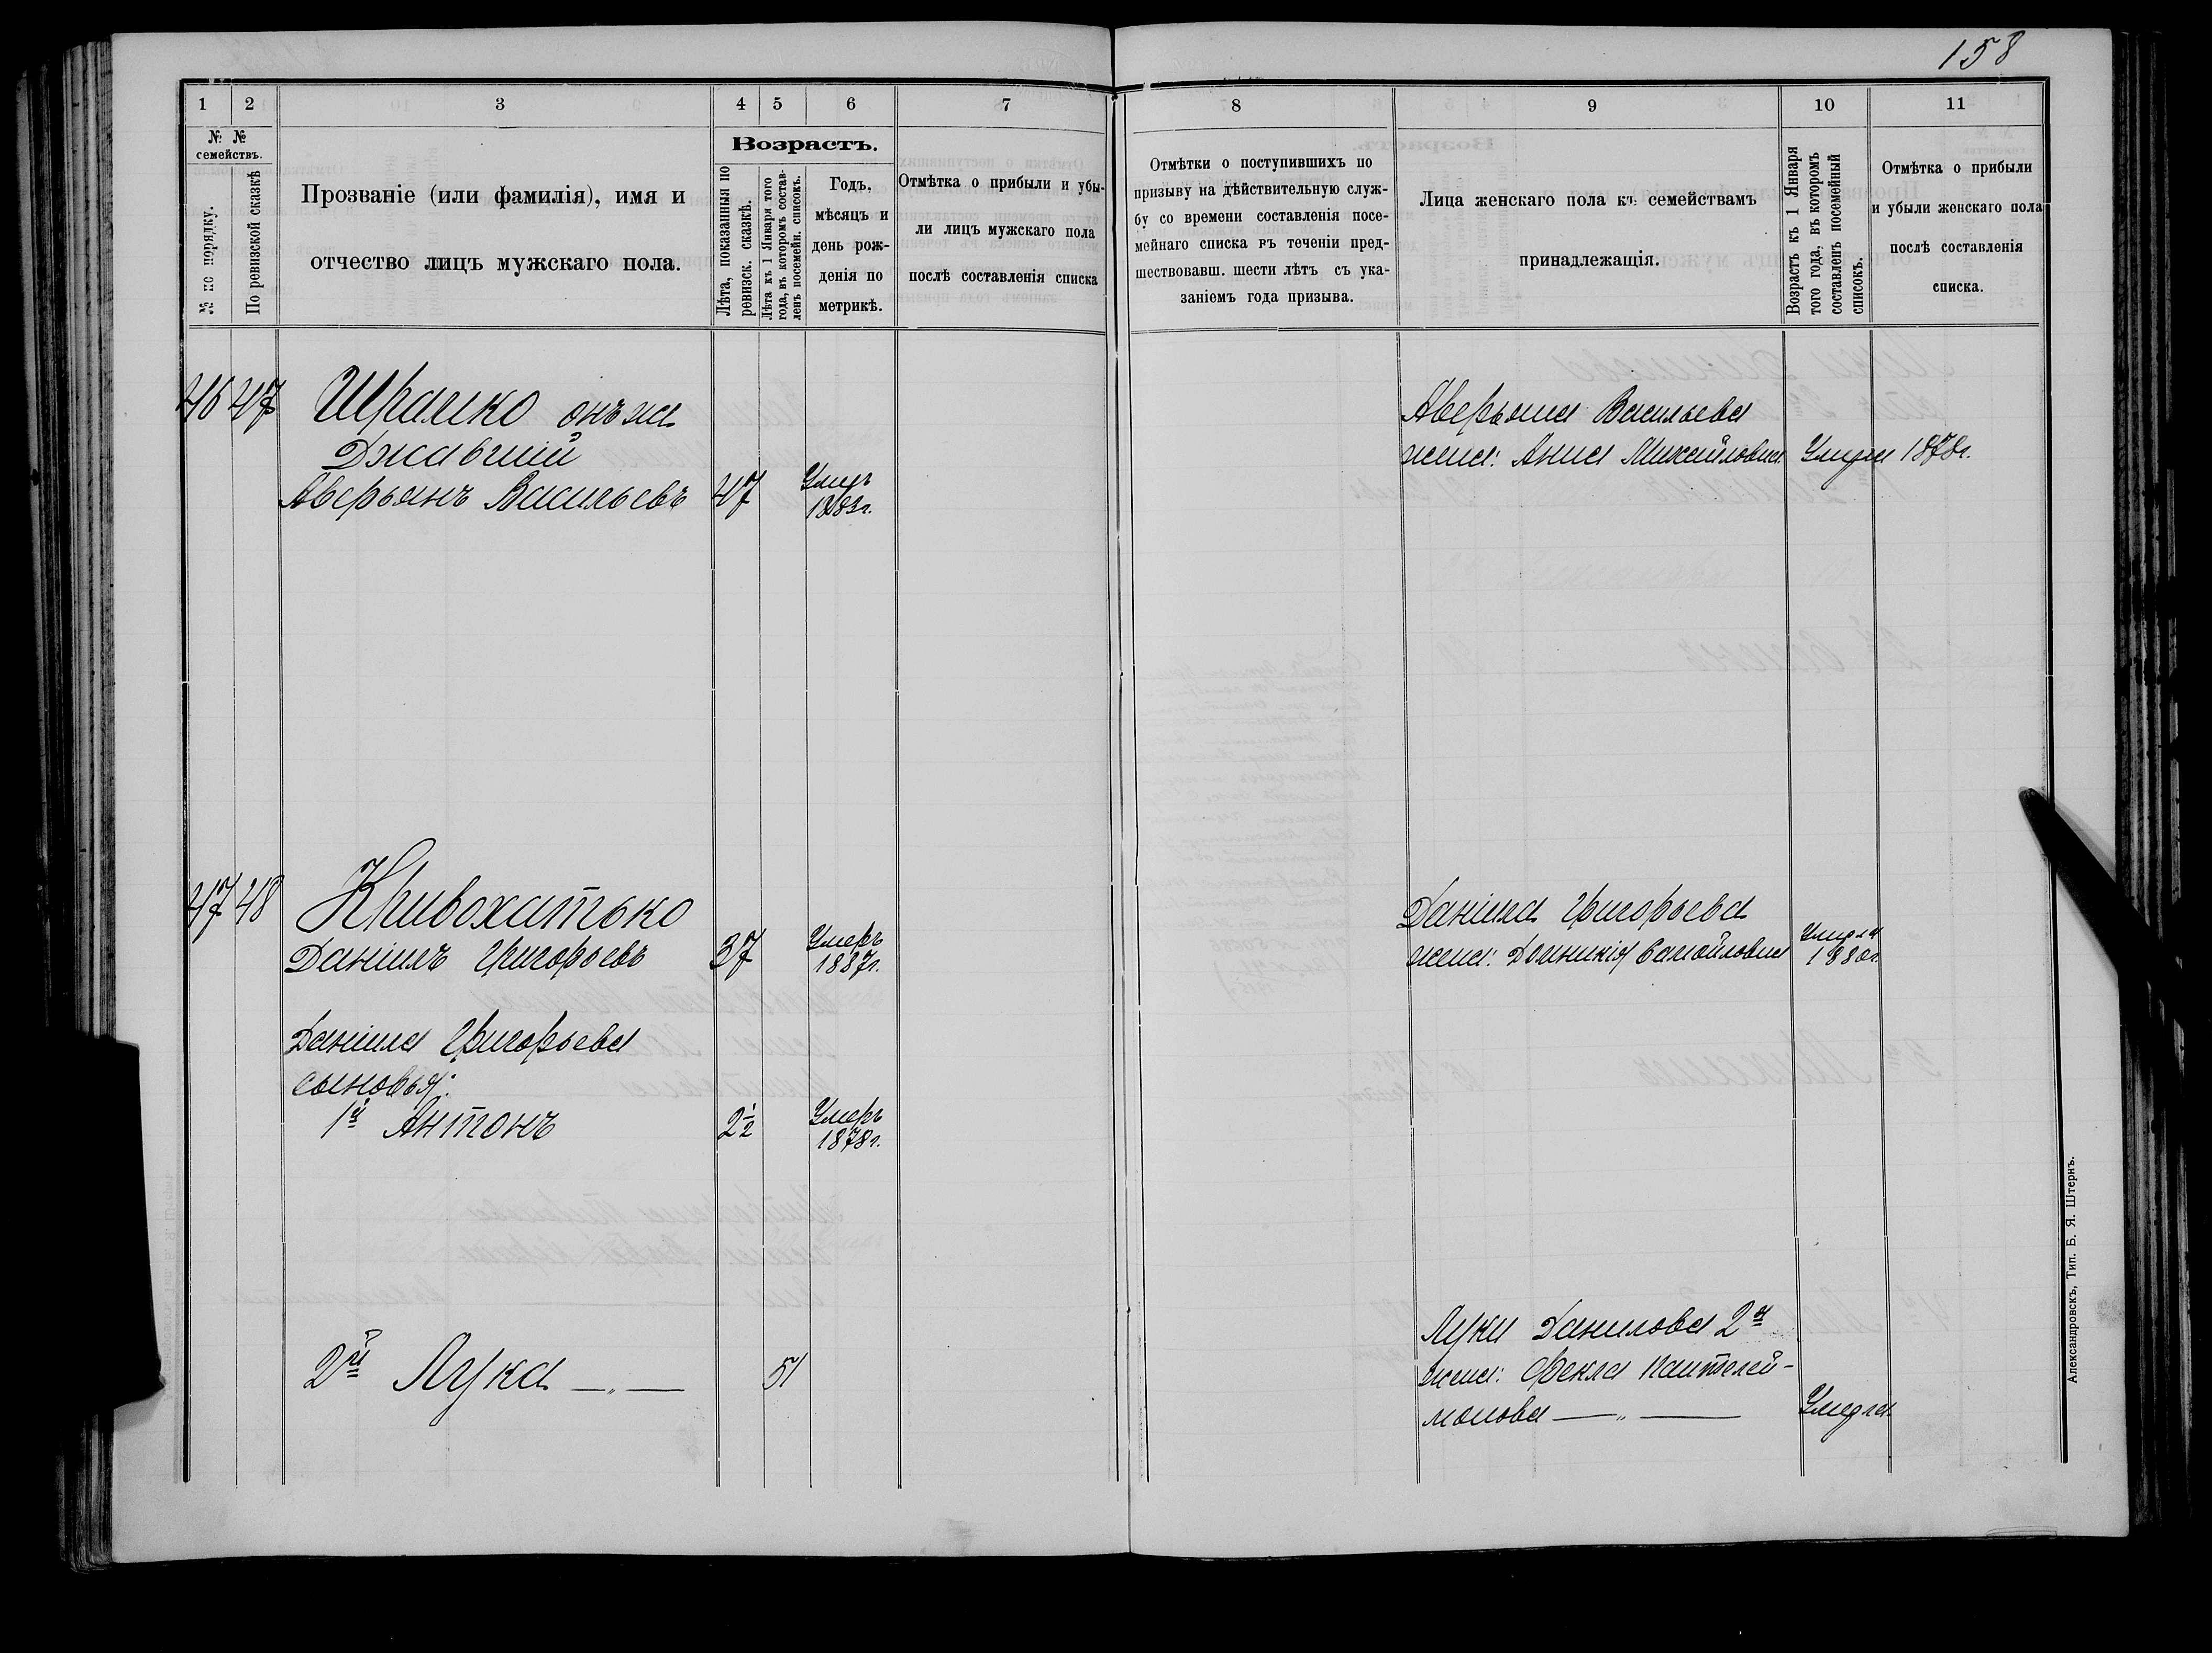 158
1 2 3 4 5 6 7
№ №
семействъ.
№ по порядку.
По ревизской сказкѣ
Прозваніе (или фамилія), имя и
отчество лицъ мужскаго пола.
Возрастъ.
Лѣта, показанныя по
ревизск. сказкѣ.
Лѣта къ 1 Января того
года, въ которомъ состав-
ленъ посемейн. списокъ.
Годъ,
мѣсяцъ и
день рож-
денія по
метрикѣ.
Отмѣтка о прибыли и убы-
ли лицъ мужскаго пола
послѣ составленія списка
46 47 Шрамко онъ же
Джавгий
Аверьянъ Васильевъ 47 Умеръ
1883г.
47 48 Кривохатько
Даніилъ Григорьевъ 37 Умеръ
1887г.
Даніила Григорьева
сыновья:
1й Антонъ 2½ Умеръ
1878г.
2й Лука —„— 51
8 9 10 11
Отмѣтки о поступившихъ по
призыву на дѣйствительную служ-
бу со времени составленія посе-
мейнаго списка въ теченіи пред-
шествовавш. шести лѣтъ съ ука-
заніемъ года призыва.
Лица женскаго пола къ семействамъ
принадлежащія.
Возрастъ къ 1 Января
того года, въ которомъ
составленъ посемейный
списокъ.
Отмѣтка о прибыли
и убыли женскаго пола
послѣ составленія
списка.
Аверьяна Васильева
жена: Анна Михайловна Умерла 1878г.
Даніила Григорьева
жена: Домникія Самойловна Умерла
1880г.
Луки Данилова 2я
жена: Фекла Пантелей-
монова —„— Умерла
Александровскъ, Тип. Б. Я. Штернъ.